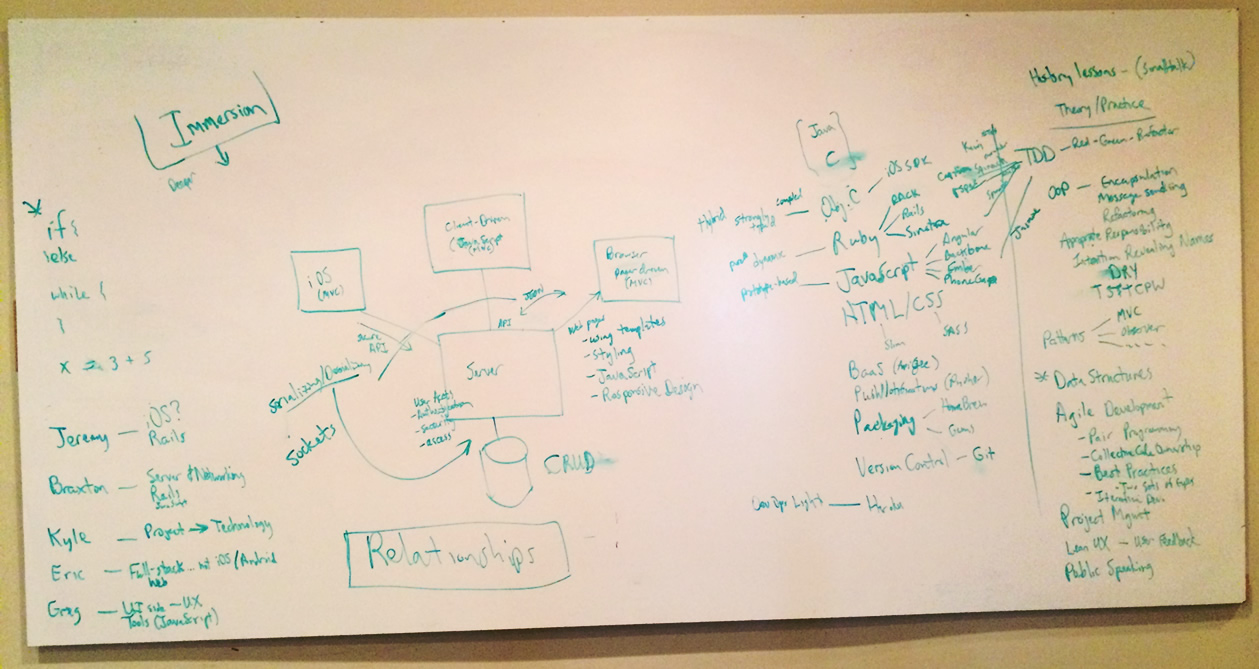 Immersion
Deeper
if {
else
while {
}
x = 3 + 5
Jeremy — iOS?
Rails
Braxton — Server & Networking
Rails
Kyle — Project → Technology
Eric — Full-stack... not iOS/Android
Web
Greg — UI side — UX
Tools (JavaScript)
iOS
(MVC)
Client-Driven
(JavaScript
(MVC)
Browser
page-driven
(MVC)
JSON
API
secure
API
Serializing/Deserializing
Sockets
Server
User Auth
- Authentication
- Security
- access
CRUD
Relationships
Web pages
- Using templates
- Styling
- JavaScript
- Responsive Design
[Java
C
Hybrid strongly typed compiled — Obj. C — iOS SDK
dynamic — Ruby
RACK
Rails
Sinatra
prototype-based — JavaScript
Angular
Backbone
Ember
PhoneGap
HTML/CSS
Slim
SASS
BaaS
Push Notifications
Packaging
HomeBrew
Gems
Version Control — Git
DevOps Light — Heroku
History lessons - (Smalltalk)
Theory/Practice
TDD — Red-Green-Refactor
Kiwi
rspec
Jasmine
OOP — Encapsulation
Message sending
Refactoring
Appropriate Responsibility
Intention Revealing Names
DRY
TSTTCPW
Patterns
MVC
Observer
* Data Structures
Agile Development
- Pair Programming
- Collective Code Ownership
- Best Practices
- Two sets of Eyes
- Iteration
Project Mgmt
Lean UX — User Feedback
Public Speaking